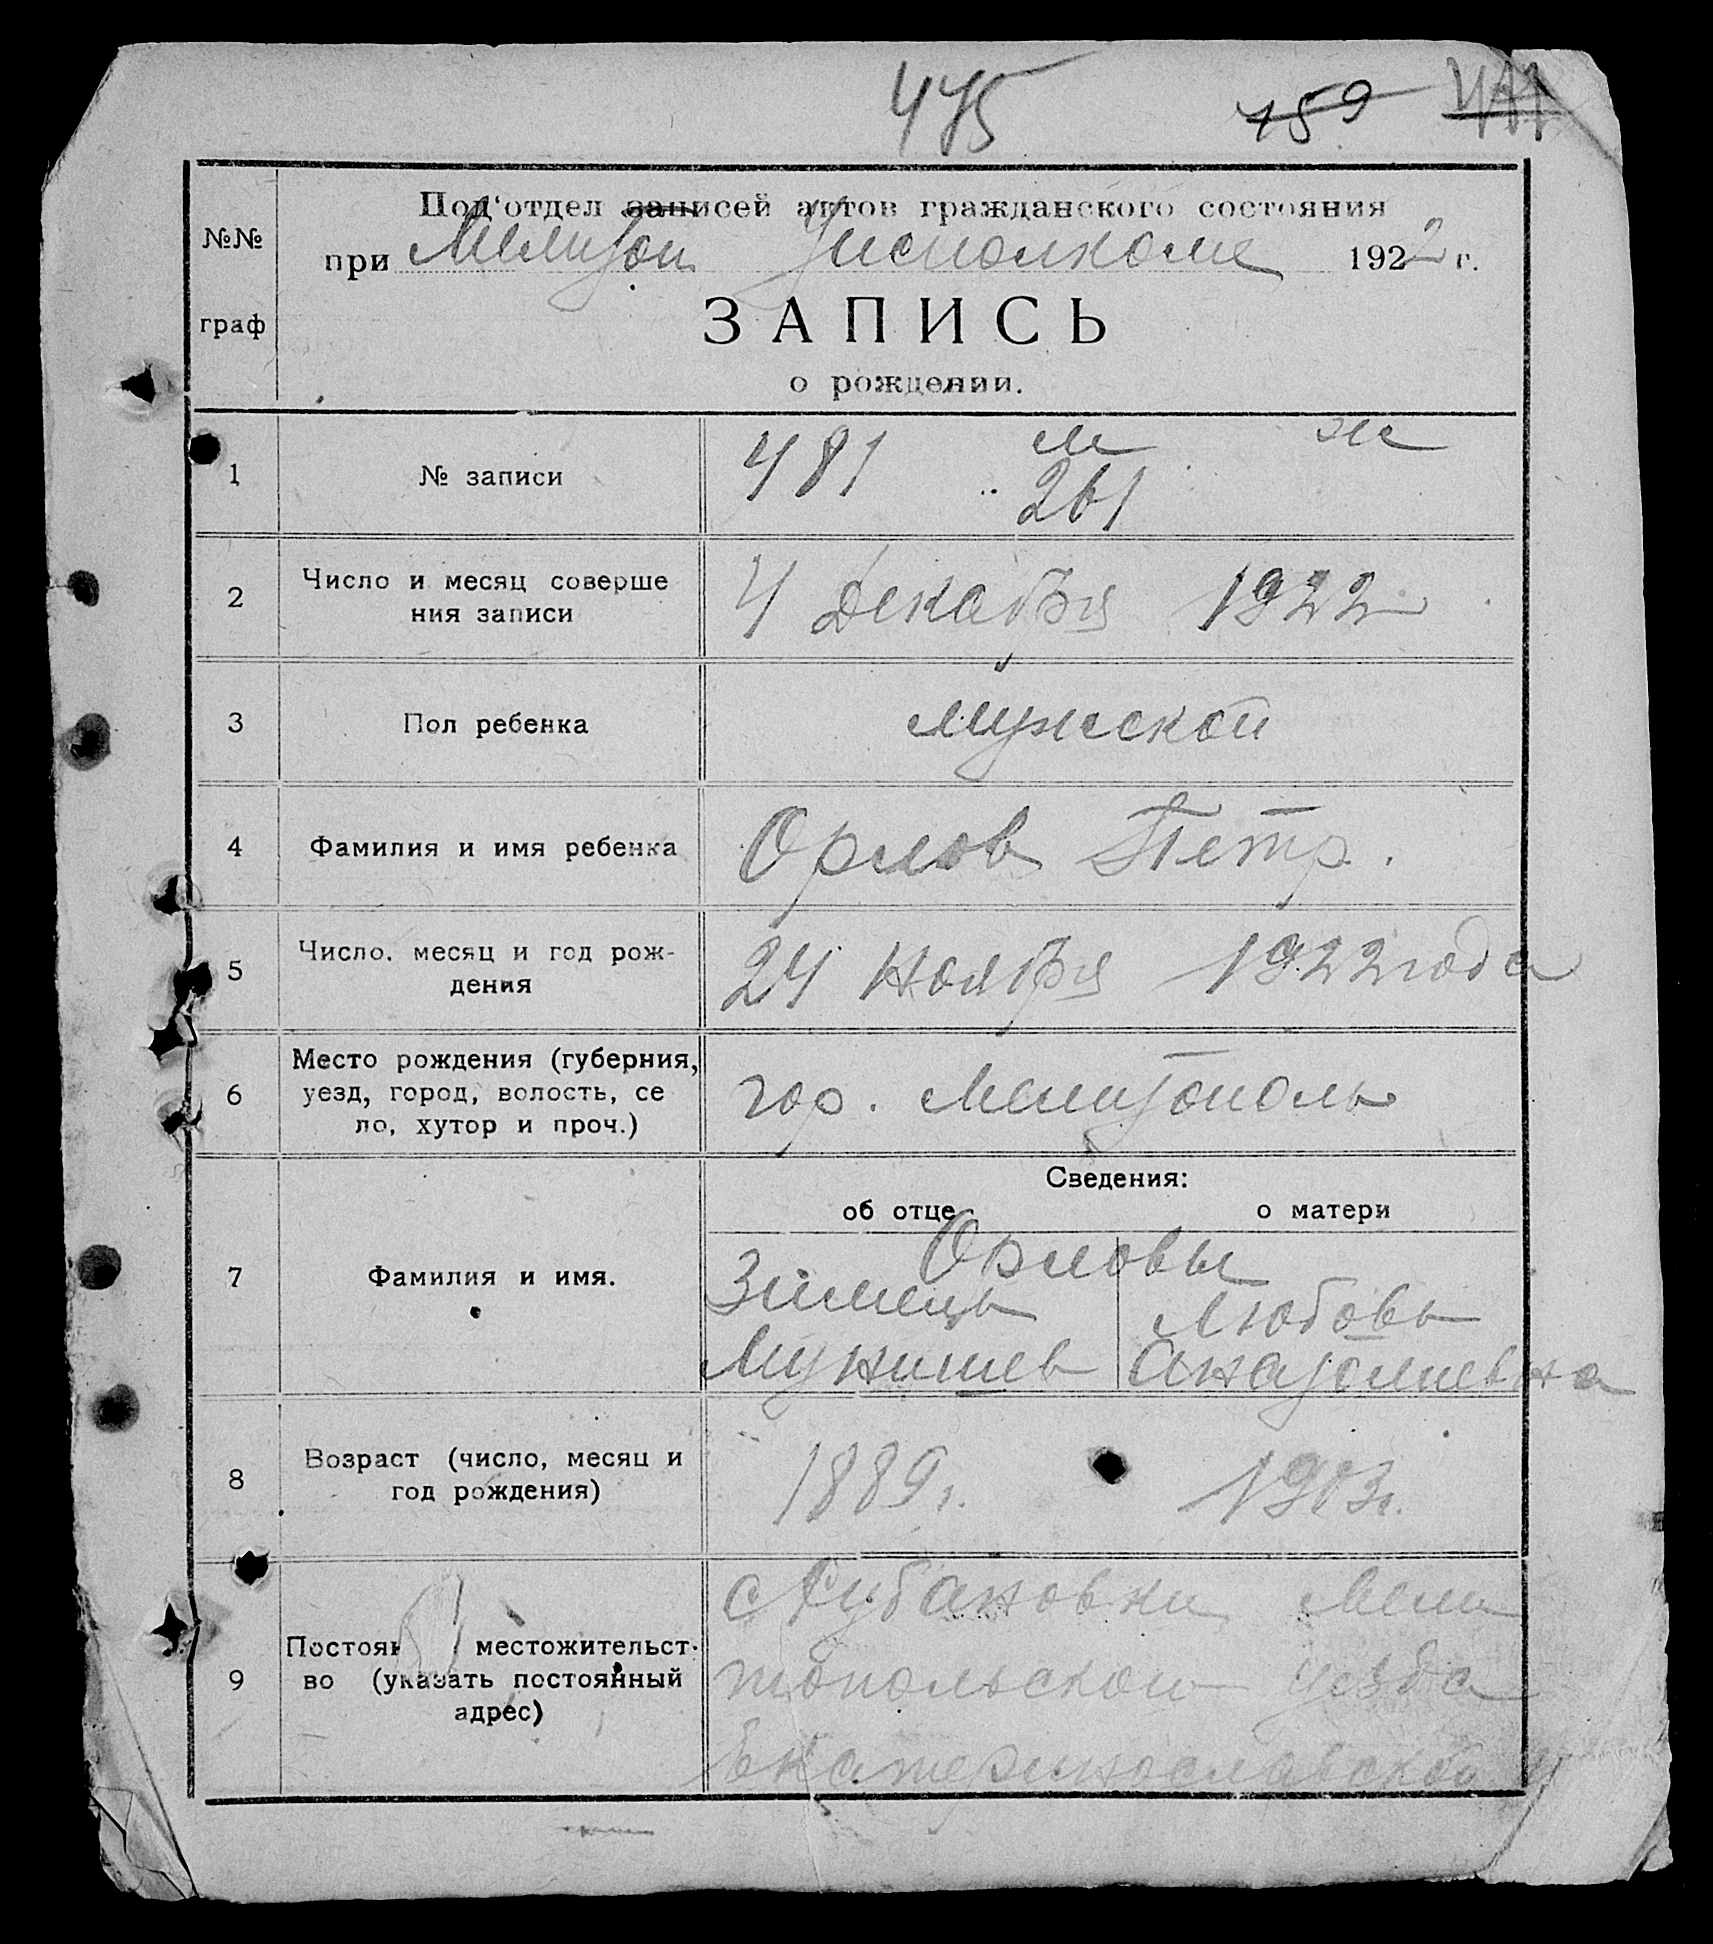 475 159
№№ граф
Под'отдел записей актов гражданского состояния
при Мелитоп. Уисполкоме 1922 г.
ЗАПИСЬ
о рождении.
1 № записи 481 м ж
261
2 Число и месяц соверше
ния записи 4 Декабря 1922
3 Пол ребенка мужской
4 Фамилия и имя ребенка Орлов Петр.
5 Число, месяц и год рож-
дения 24 Ноября 1922 года
6 Место рождения (губерния,
уезд, город, волость, се
ло, хутор и проч.) гор. Мелитополь
Сведения:
об отце о матери
7 Фамилия и имя. Орловы
Любовь
Анатолиевна
8 Возраст (число, месяц и
год рождения) 1889 г. 1903 г.
9 Постоян местожительст-
во (указать постоянный
адрес)
Мели
топольского уезда
Екатеринославской